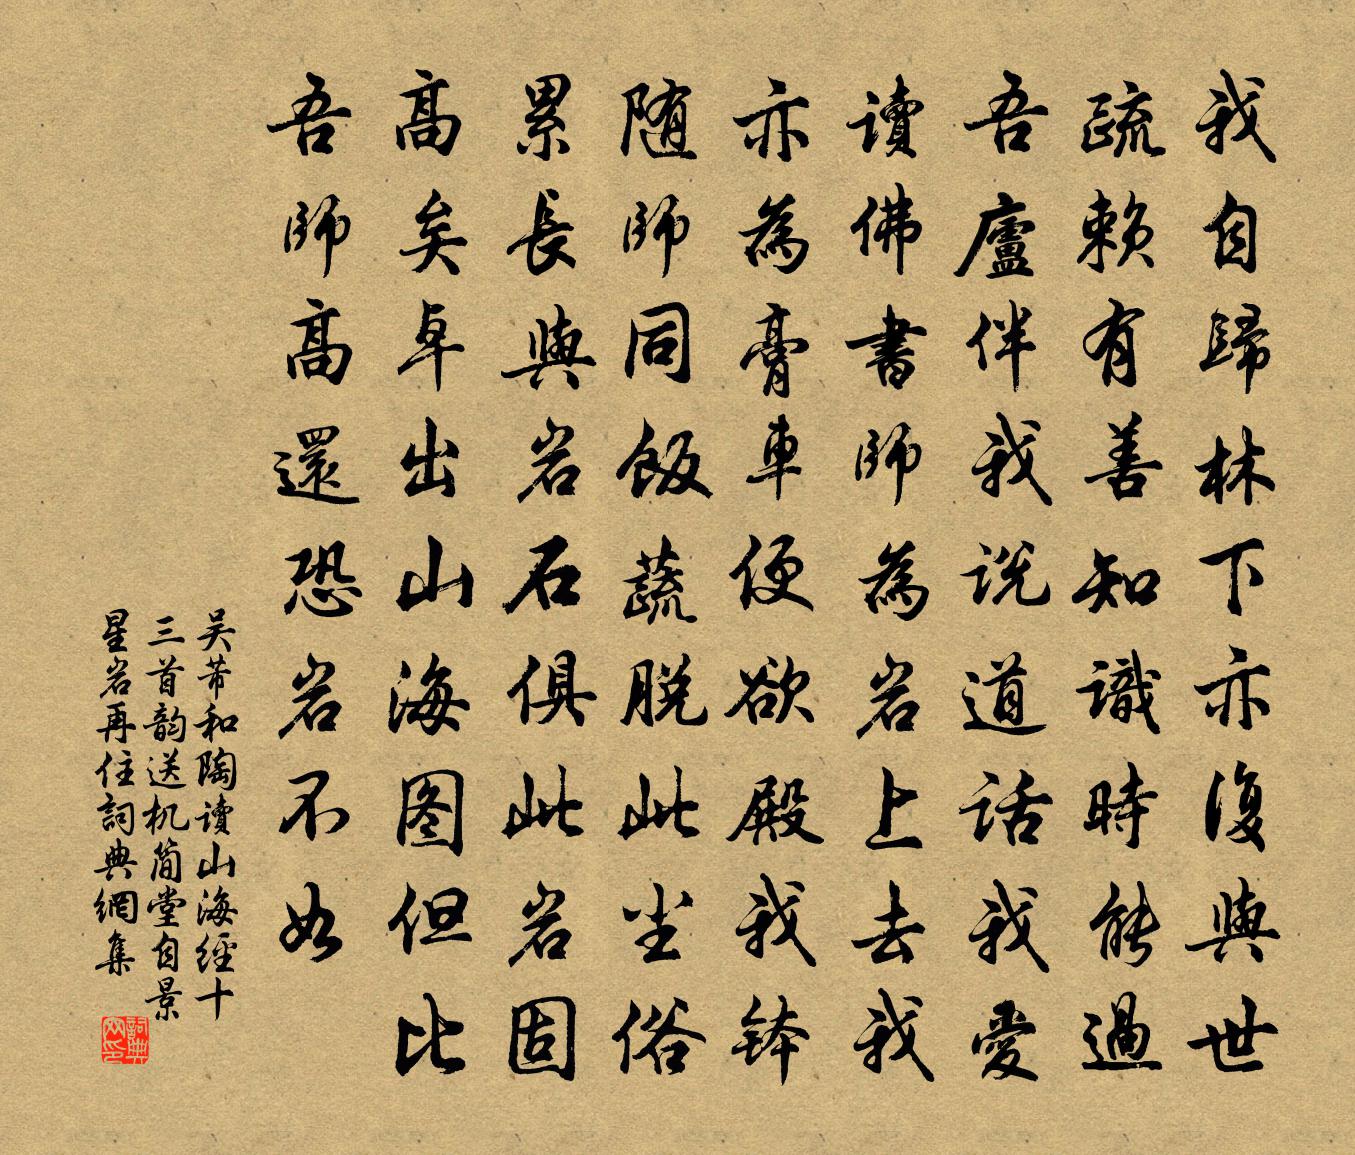 我自歸林下亦復與世
疏賴有善知識時能過
吾廬伴我说道話我愛
讀佛書師為岩上去我
亦為膏車便欲殿我鉢
随師同飯蔬脱此尘俗
累長與岩石俱此岩固
高矣卓出山海图但比
吾師高還恐岩不如
吴芾和陶讀山海經十
三首韵送机简堂自景
星岩再住詞典網集
詞典
网印